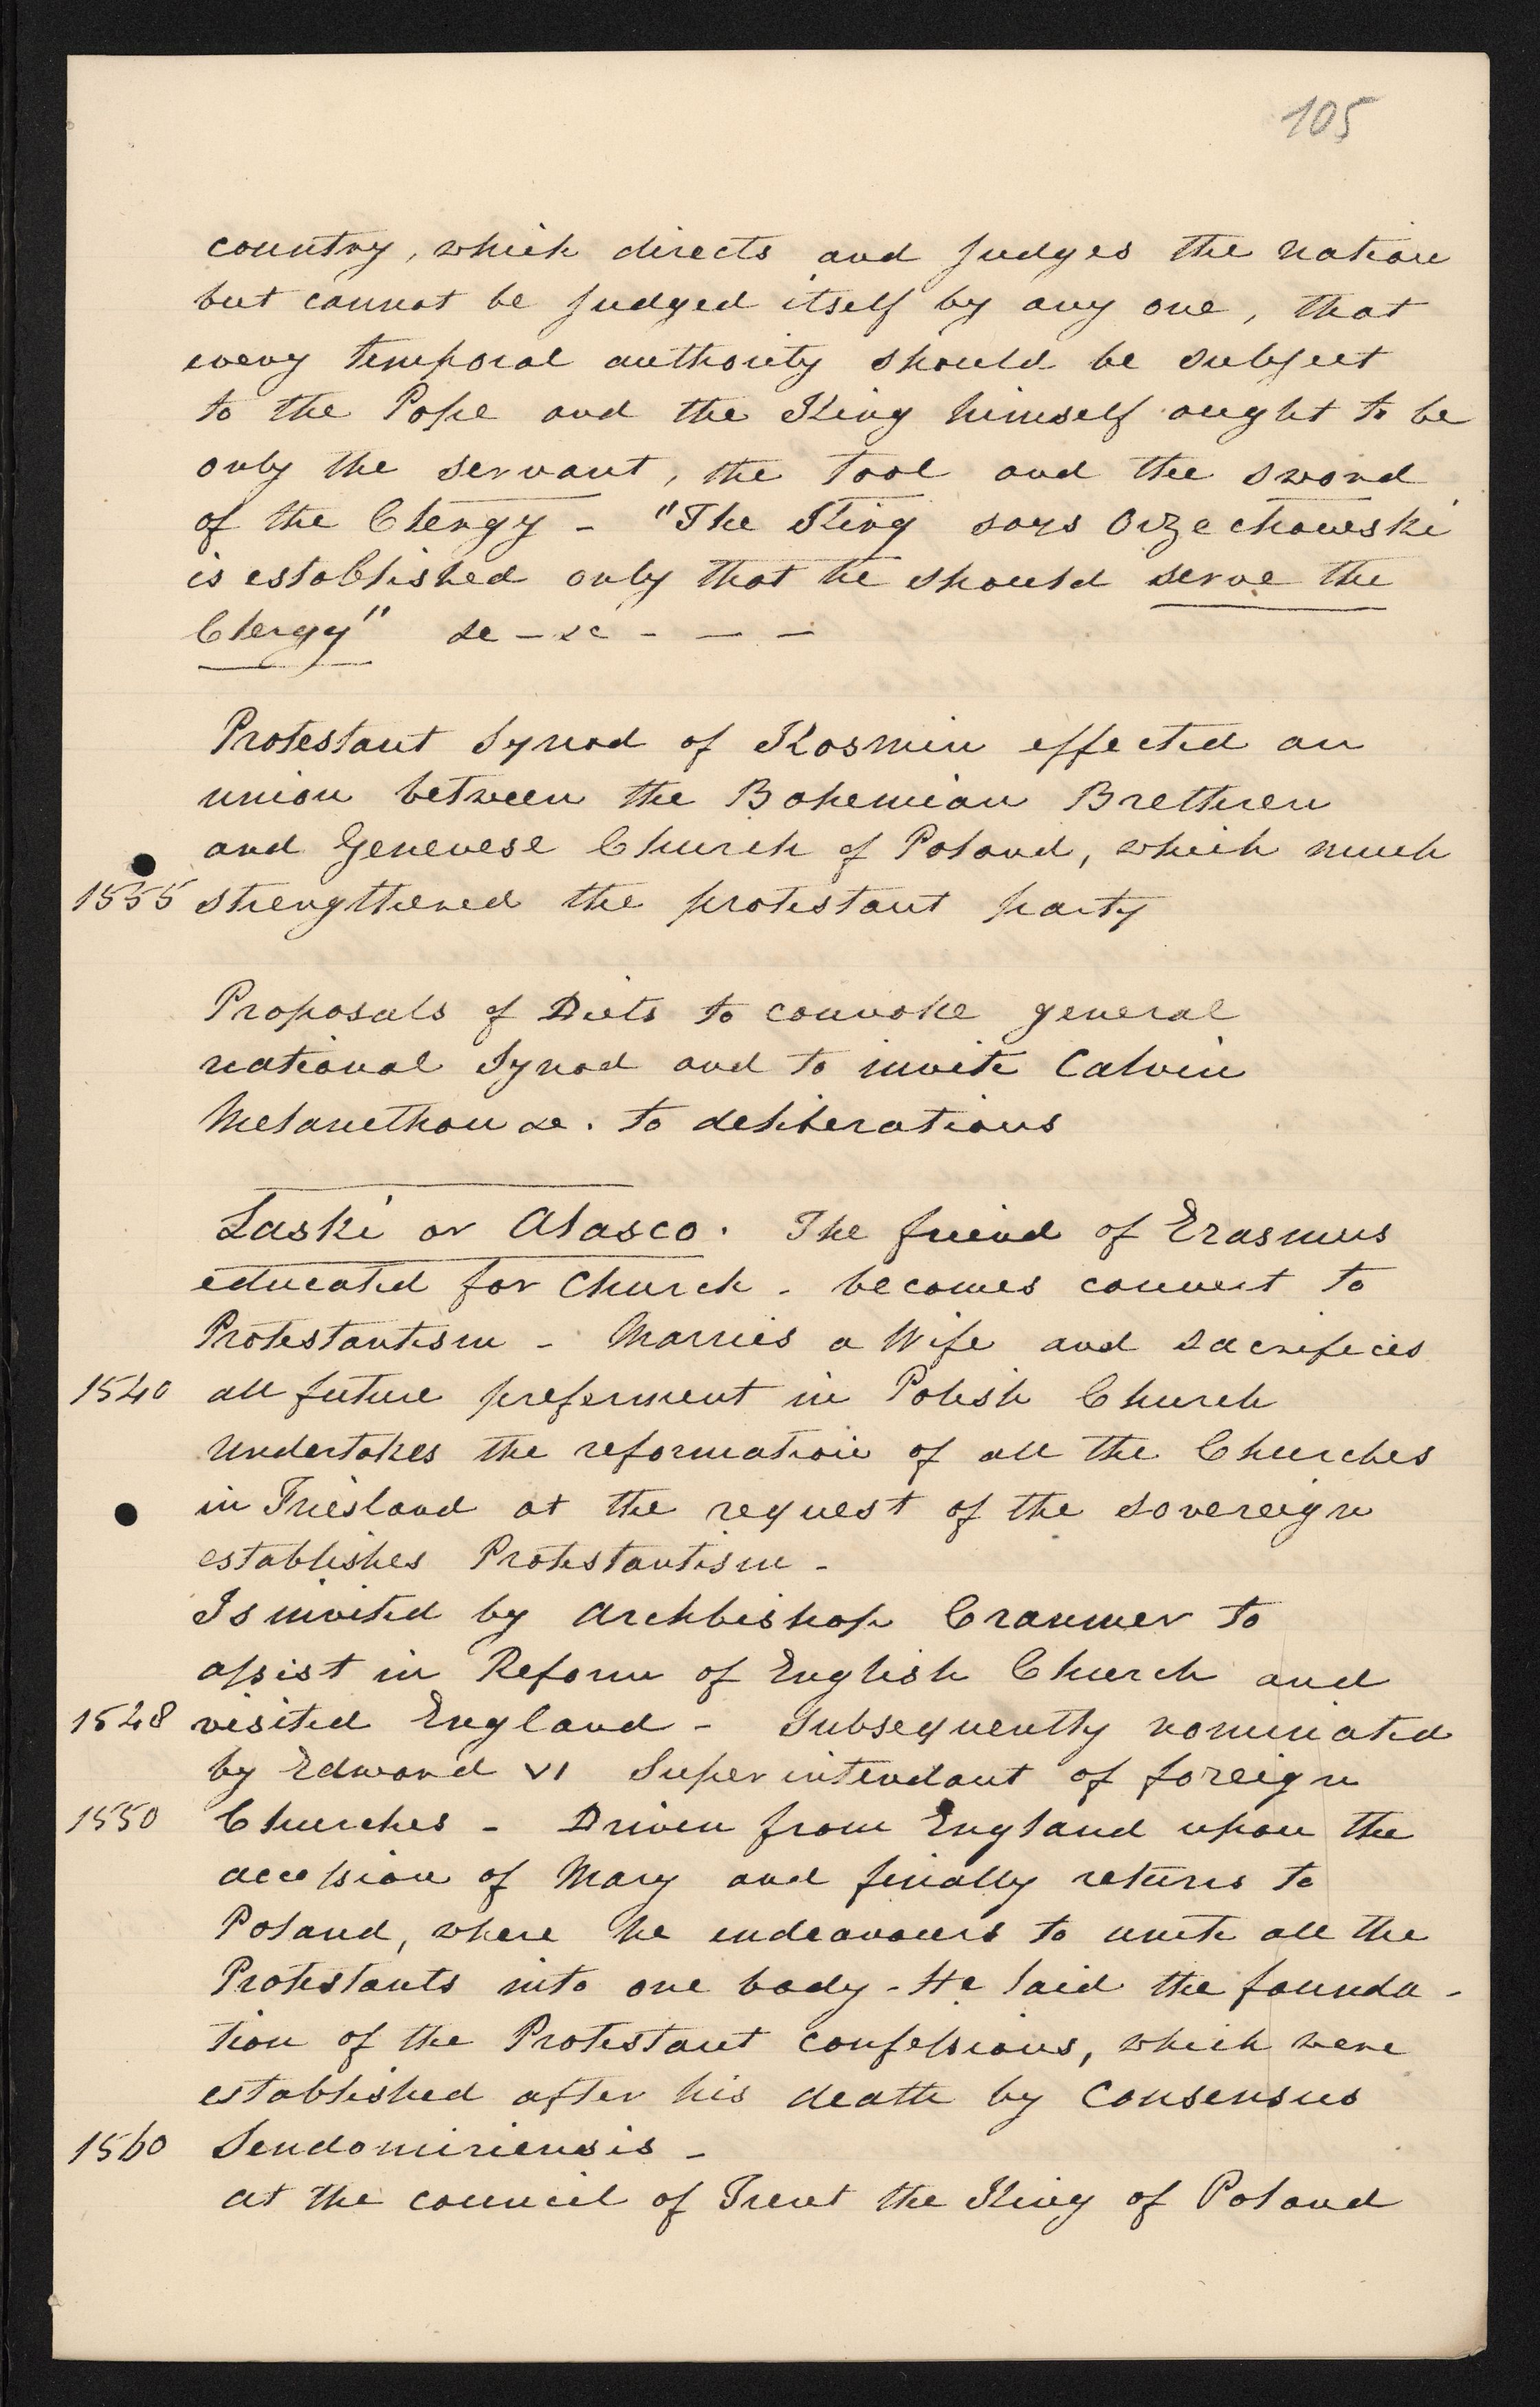 105
country, which directs and judges the nation
but cannot be judged itself by any one, that
every temporal authority should be subject
to the Pope and the King himself ought to be
only the servant, the tool and the sword
of the Clergy - "The King says Orzechowski
is established only that he should serve the
Clergy" &c - &c - — —
Protestant Synod of Kosmin effected an
union between the Bohemian Brethren
and Genevese Church of Poland, which much
1555 strengthened the protestant party
Proposals of Diets to convoke general
national Synod and to invite Calvin
Melancthon &c. to deliberations
Laski or Alasco. The friend of Erasmus
educated for Church - becomes convert to
Protestantism - Marries a Wife and sacrifices
1540 all future preferment in Polish Church
Undertakes the reformation of all the Churches
in Friesland at the request of the sovereign
establishes Protestantism -
Is invited by Archbishop Cranmer to
assist in Reform of English Church and
1548 visited England - Subsequently nominated
by Edward VI Superintendant of foreign
1550 Churches - Driven from England upon the
accession of Mary and finally returns to
Poland, where he endeavours to unite all the
Protestants into one body - He laid the founda-
tion of the Protestant confessions, which were
established after his death by Consensus
1560 Sendomiriensis -
at the council of Trent the King of Poland